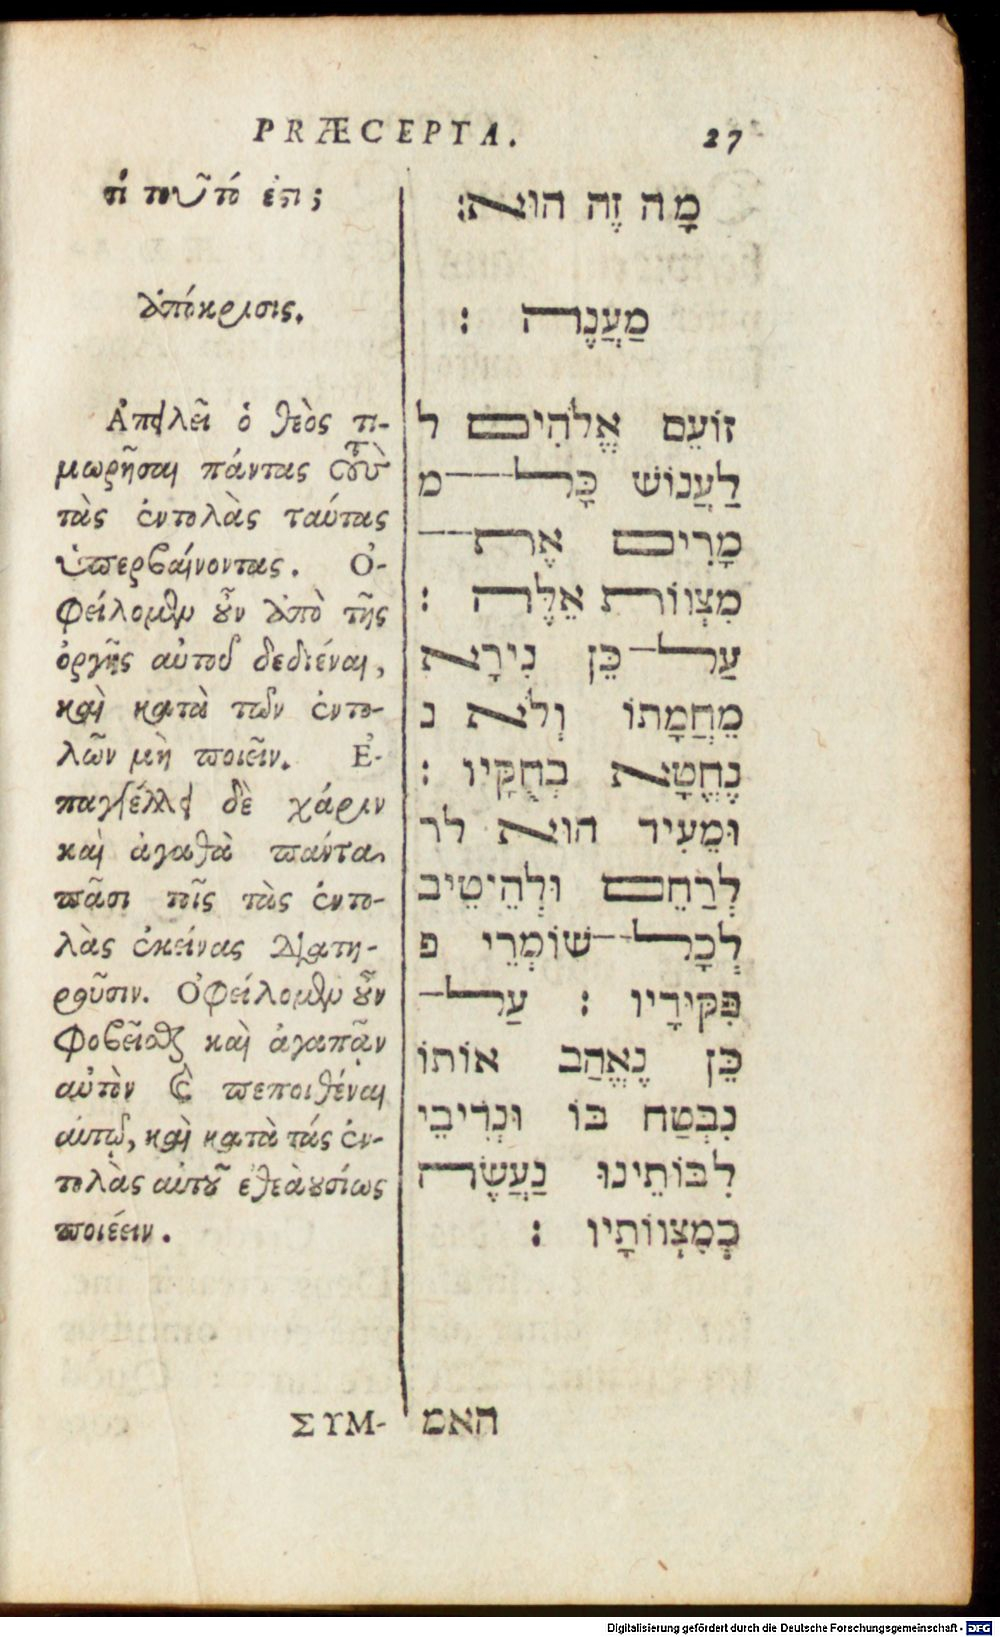 PRÆCEPTA. 27
τί τοῦτό ἐςι;
Ἀπόκρισις.
Ἀπειλεῖ ὁ θεὸς τι-
μωρῆσαι πάντας τοὺς
τὰς ἐντολὰς ταύτας
ὑπερβαίνοντας. Ὀ-
φείλομεν οὖν ἀπὸ τῆς
ὀργῆς αὐτοῦ δεδιέναι,
καὶ κατὰ τῶν ἐντο-
λῶν μὴ ποιεῖν. Ἐ-
παγγέλλει δὲ χάριν
καὶ ἀγαθὰ πάντα
πᾶσι τοῖς τὰς ἐντο-
λὰς ἐκείνας διατη-
ροῦσιν. Ὀφείλομεν οὖν
φοβεῖσθαι καὶ ἀγαπᾷν
αὐτὸν καὶ πεποιθέναι
αὐτῷ, καὶ κατὰ τάς ἐν-
τολὰς αὐτοῦ ἐθελουσίως
ποιέειν.
ΣΥΜ-
מָה זֶה הוּא:
מַעֲנֶה :
זוֹעֵם אֱלֹהִים ל
לַעֲנוֹשׁ כָּל מ
מָרִים אֶת
מִצְווֹת אֵלֶּה :
עַל כֵּן נִירָא
מֵחֲמָתוֹ וְלֹא נ
נֶחֱטָא בְחֻקָּיו :
וּמֵעִיד הוּא לר
לְרַחֵם וּלְהֵיטֵיב
לְכָל שׁוֹמְרֵי פ
פִּקּוּדָיו : עַל
כֵּן נֶאֱהַב אוֹתוֹ
נִבְטַח בּוֹ וּנְדִיבֵי
לִבּוֹתֵינוּ נַעֲשֶׂה
כְּמִצְווֹתָיו :
האמ
Digitalisierung gefördert durch die Deutsche Forschungsgemeinschaft - DFG